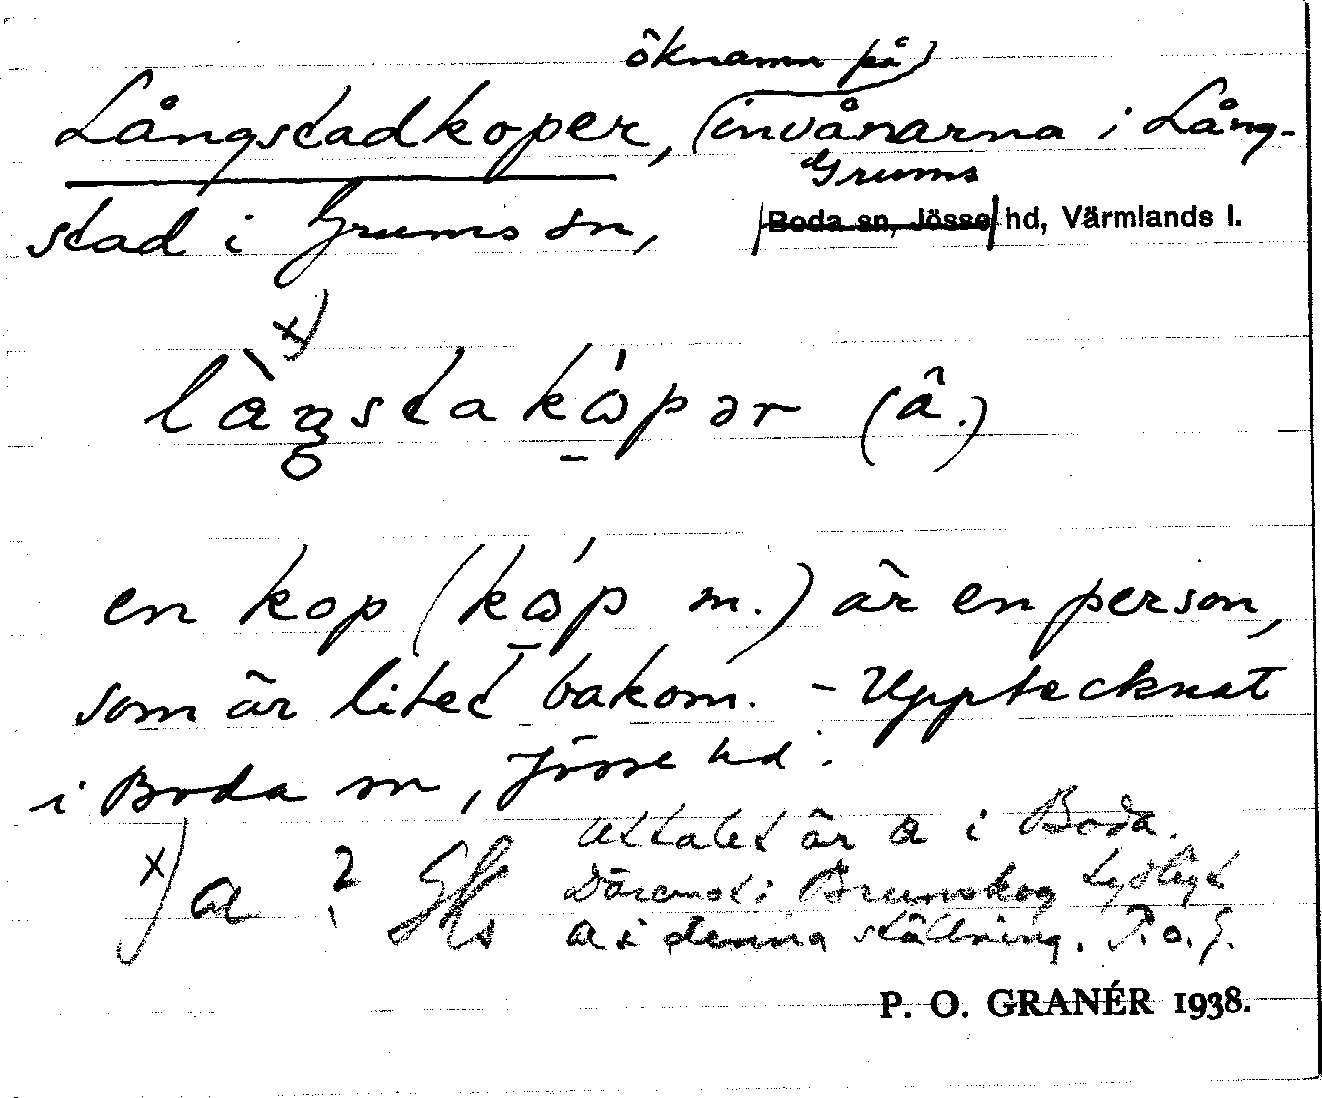 öknamn på)
Långstadkoper, (invånarna i Lång-
Grums
stad i Grums sn, Boda sn, Jösse hd, Värmlands l.
x)
(â.)
en kop ( m.) är en person,
som är litet bakom. - Upptecknat
i Boda sn, Jösse hd.
x) a ? uttalet är a i Boda.
Däremot i Brunskog tydligt
a i denna ställning. P.O.G.
P. O. GRANÉR 1938.